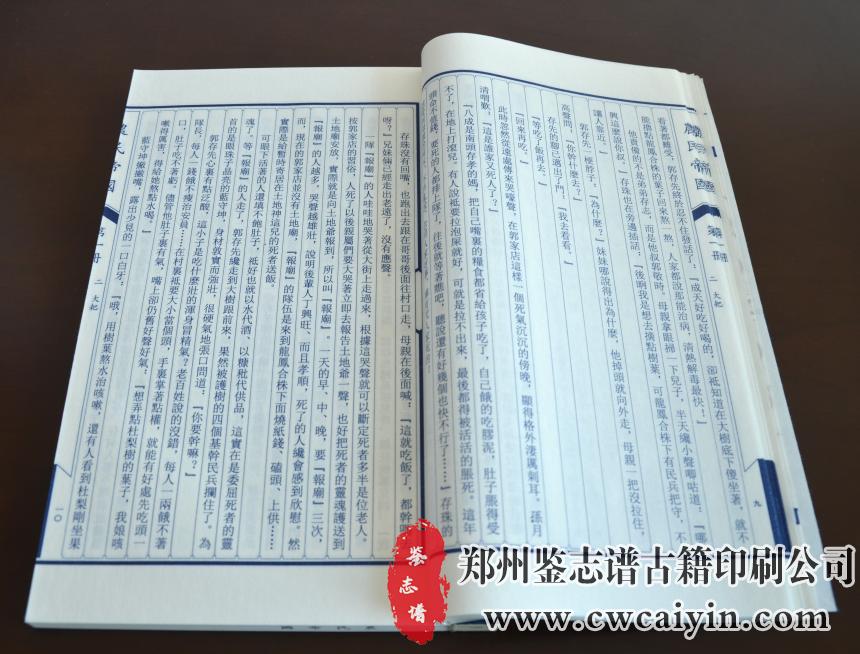 農民帝國 第一冊 二 大妃 九
看著都難受。郭存先終於忍不住發話了：「成天好吃好喝的，卻祇知道在大樹底下傻坐著，就不
能擼點龍鳳合株的葉子回來熬一熬，人家都說那能治病，清熱解毒最快！」
他責備的不是弟弟存志，而是他叔郭敬時。母親拿眼掃一下兒子，半天纔小聲唧咕道：「哪
興這麼說你叔。」存珠也在旁邊插話：「後晌我是想去擼點樹葉，可龍鳳合株下有民兵把守，不
讓人靠近。」
郭存先一梗脖子：「為什麼？」妹妹哪說得出為什麼，他掉頭就向外走。母親一把沒拉住，
高聲問：「你幹什麼去？」
存先的腳已邁出了門：「我去看看。」
「等吃了飯再去。」
「回來再吃。」
此時忽然從遠處傳來哭嚎聲，在郭家店這樣一個死氣沉沉的傍晚，顯得格外淒厲刺耳。孫月
清喟歎：「這是誰家又死人了？」
「八成是南頭存孝的媽，把自己嘴裏的糧食都省給孩子吃了，自己餓的吃膠泥，肚子脹得受
不了，在地上打滾兒。有人說祇要拉泡屎就好，可就是拉不出來，最後都得被活活的脹死。這年
頭命不值錢，要死的人都排上隊了，往後就等著瞧吧，聽說還有好幾個也快不行了……」存珠的
存珠沒有回嘴，也跑出去跟在哥哥後面往村口走，母親在後面喊：「這就吃飯了，都幹嘛
呀？」兄妹倆已經走出老遠了，沒有應聲。
一隊『報廟』的人哇哇地哭著從大街上走過來，根據這哭聲就可以斷定死者多半是位老人。
按郭家店的習俗，人死了以後親屬們要大哭著立即去報告土地爺一聲，也好把死者的靈魂護送到
土地廟安放，實際就是向土地爺報到，所以叫『報廟』。一天的早、中、晚，要『報廟』三次，
『報廟』的人越多，哭聲越雄壯，說明後輩人丁興旺、而且孝順，死了的人纔會感到欣慰。然
而，現在的郭家店並沒有土地廟，『報廟』的隊伍是來到龍鳳合株下面燒紙錢、磕頭、上供……
實際是給暫時寄居在土地神這兒的死者送飯。
可眼下活著的人還填不飽肚子，祇好也就以水代酒、以糠秕代供品，這實在是委屈死者的靈
魂了。等『報廟』的人走了，郭存先纔走到大樹跟前來，果然被護樹的四個基幹民兵攔住了。為
首的是眼珠子晶亮的藍守坤，身材敦實而強壯，很硬氣地張口問道：「你要幹嘛？」
郭存先心裏有點泛酸，這小子是吃什麼壯的渾身冒精氣？老百姓說的沒錯，每人一兩餓不著
隊長，每人一錢餓不瘦治安員……在村裏祇要大小當個頭，手裏掌著點權，就能有好處先吃頭一
口，肚子吃不著虧。儘管他肚子裏有氣，嘴上卻仍舊好聲好氣：「想弄點杜梨樹的葉子，我娘咳
嗽得厲害，得給她熬點水喝。」
藍守坤撇撇嘴，露出少見的一口白牙：「哦，用樹葉熬水治咳嗽，還有人看到杜梨剛坐果
農民帝國 第一冊 二 大妃 一〇
鉴志谱
郑州鉴志谱古籍印刷公司
www.cwcaiyin.com